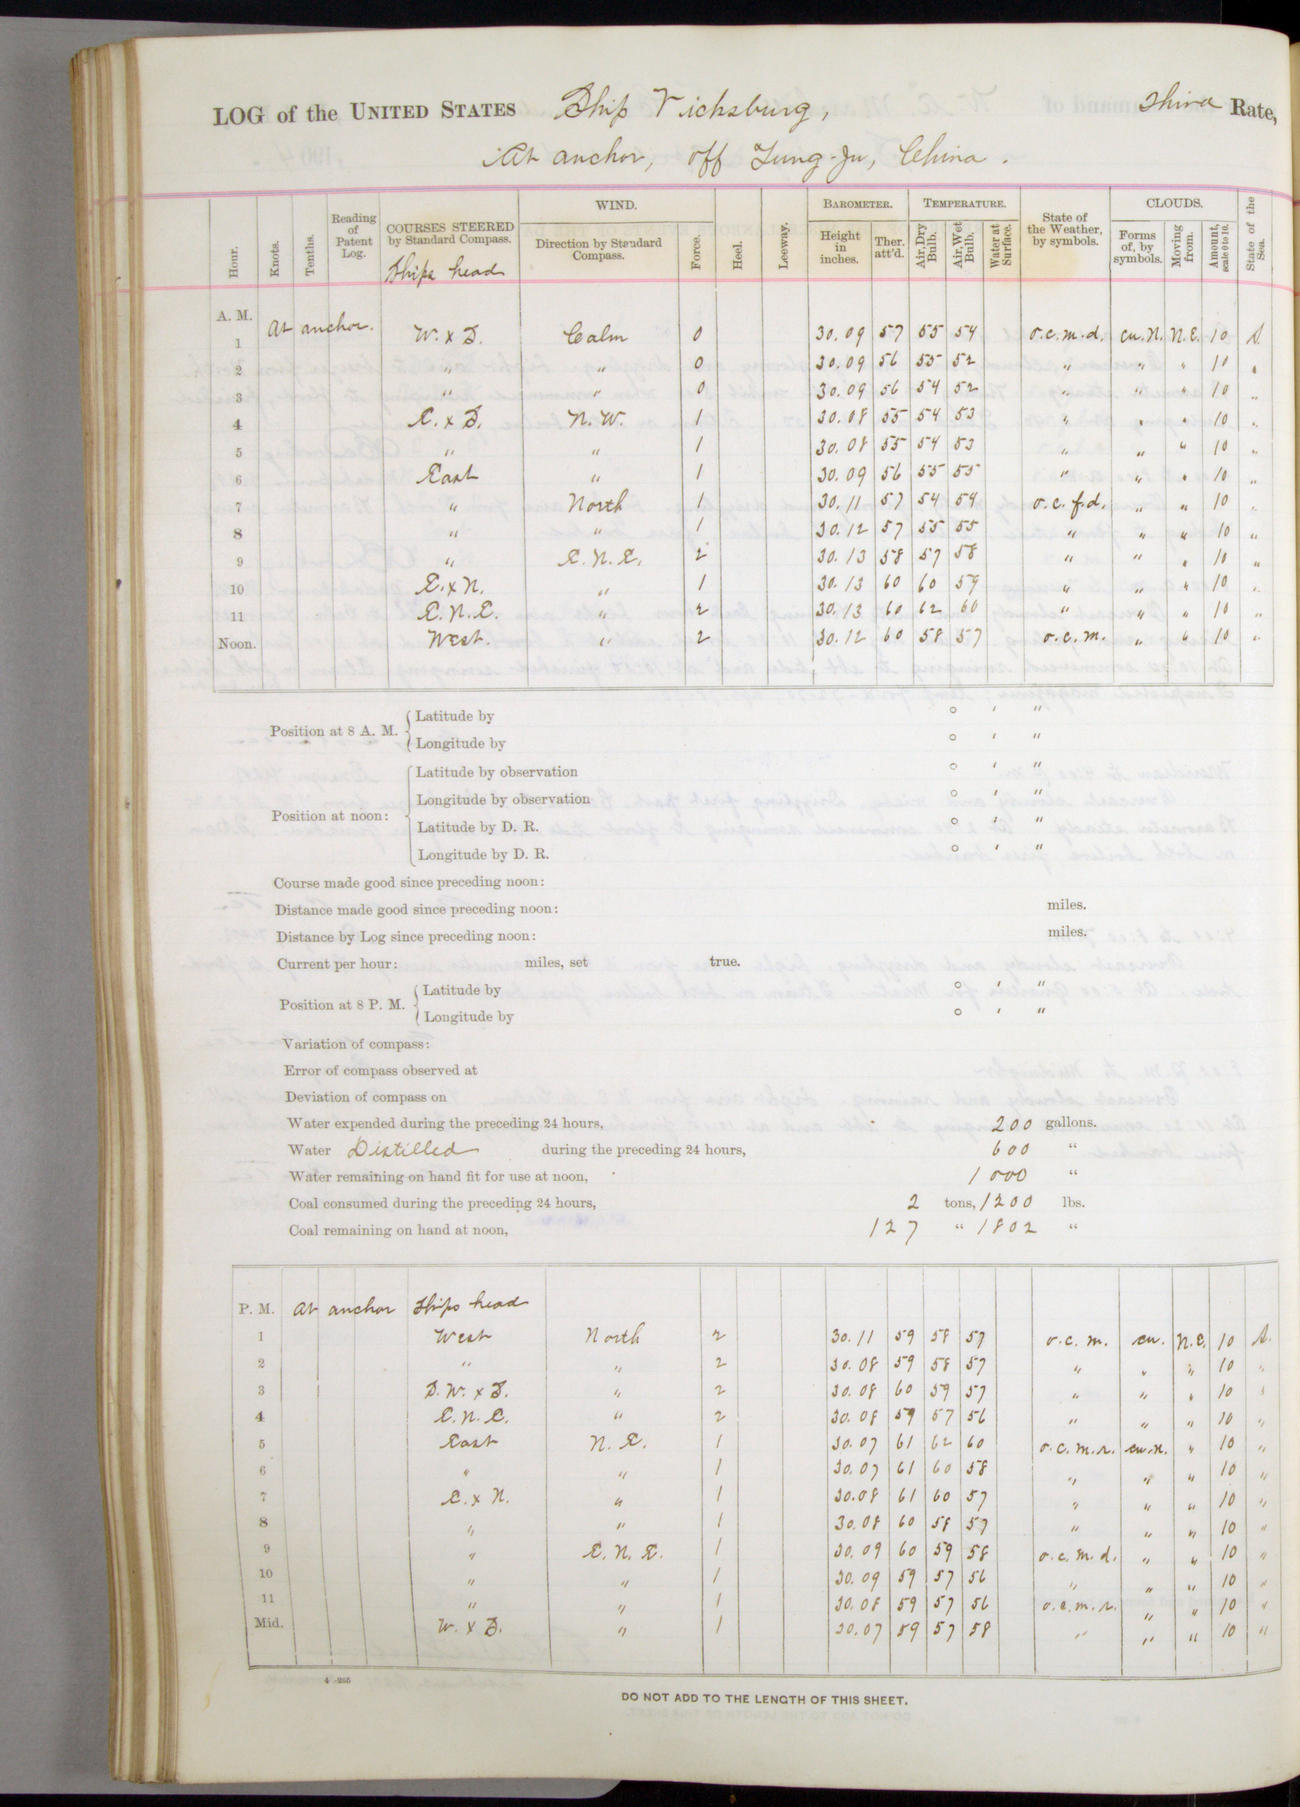 LOG of the UNITED STATES Ship Vicksburg, Third Rate,
At anchor, off Lung-Ju, China.
Hour. Knots. Tenths. Reading of Patent Log. COURSES STEERED by Standard Compass. Ships head WIND. Direction by Standard Compass. Force. Heel. Leeway. BAROMETER. Height in inches. Ther. att'd. TEMPERATURE. Air, Dry Bulb. Air, Wet Bulb. Water at Surface. State of the Weather, by symbols. CLOUDS. Forms of, by symbols. Moving from. Amount, scale 0 to 10. State of the Sea.
A. M. At anchor.
1 W. x S. Calm 0 30.09 57 55 54 o.c.m.d. cu.N. N.E. 10 S.
2 " " 0 30.09 56 55 52 " " " 10 "
3 " " 0 30.09 56 54 52 " " " 10 "
4 E. x S. N.W. 1 30.08 55 54 53 " " " 10 "
5 " " 1 30.08 55 54 53 " " " 10 "
6 East " 1 30.09 56 55 55 " " " 10 "
7 " North 1 30.11 57 54 54 o.c.f.d. " " 10 "
8 " " 1 30.12 57 55 55 " " " 10 "
9 " E.N.E. 2 30.13 58 57 58 " " " 10 "
10 E. x N. " 1 30.13 60 60 59 " " " 10 "
11 E.N.E. " 2 30.13 60 62 60 " " " 10 "
Noon. West. " 2 30.12 60 58 57 o.c.m. " " 10 "
Position at 8 A. M. Latitude by ° ' "
Longitude by ° ' "
Position at noon: Latitude by observation ° ' "
Longitude by observation ° ' "
Latitude by D. R. ° ' "
Longitude by D. R. ° ' "
Course made good since preceding noon:
Distance made good since preceding noon: miles.
Distance by Log since preceding noon: miles.
Current per hour: miles, set true.
Position at 8 P. M. Latitude by ° ' "
Longitude by ° ' "
Variation of compass:
Error of compass observed at
Deviation of compass on
Water expended during the preceding 24 hours, 200 gallons.
Water Distilled during the preceding 24 hours, 600 "
Water remaining on hand fit for use at noon, 1000 "
Coal consumed during the preceding 24 hours, 2 tons, 1200 lbs.
Coal remaining on hand at noon, 127 " 1802 "
P. M. At anchor Ships head
1 West North 2 30.11 59 58 57 o.c.m. cu. N.E. 10 S.
2 " " 2 30.08 59 58 57 " " " 10 "
3 S.W. x S. " 2 30.08 60 59 57 " " " 10 "
4 E.N.E. " 2 30.08 59 57 56 " " " 10 "
5 East N.E. 1 30.07 61 62 60 o.c.m.r. cu.n. " 10 "
6 " " 1 30.07 61 60 58 " " " 10 "
7 E. x N. " 1 30.08 61 60 57 " " " 10 "
8 " " 1 30.08 60 58 57 " " " 10 "
9 " E.N.E. 1 30.09 60 59 58 o.c.m.d. " " 10 "
10 " " 1 30.09 59 57 56 " " " 10 "
11 " " 1 30.08 59 57 56 o.c.m.r. " " 10 "
Mid. W. x S. " 1 30.07 59 57 58 " " " 10 "
4—255
DO NOT ADD TO THE LENGTH OF THIS SHEET.